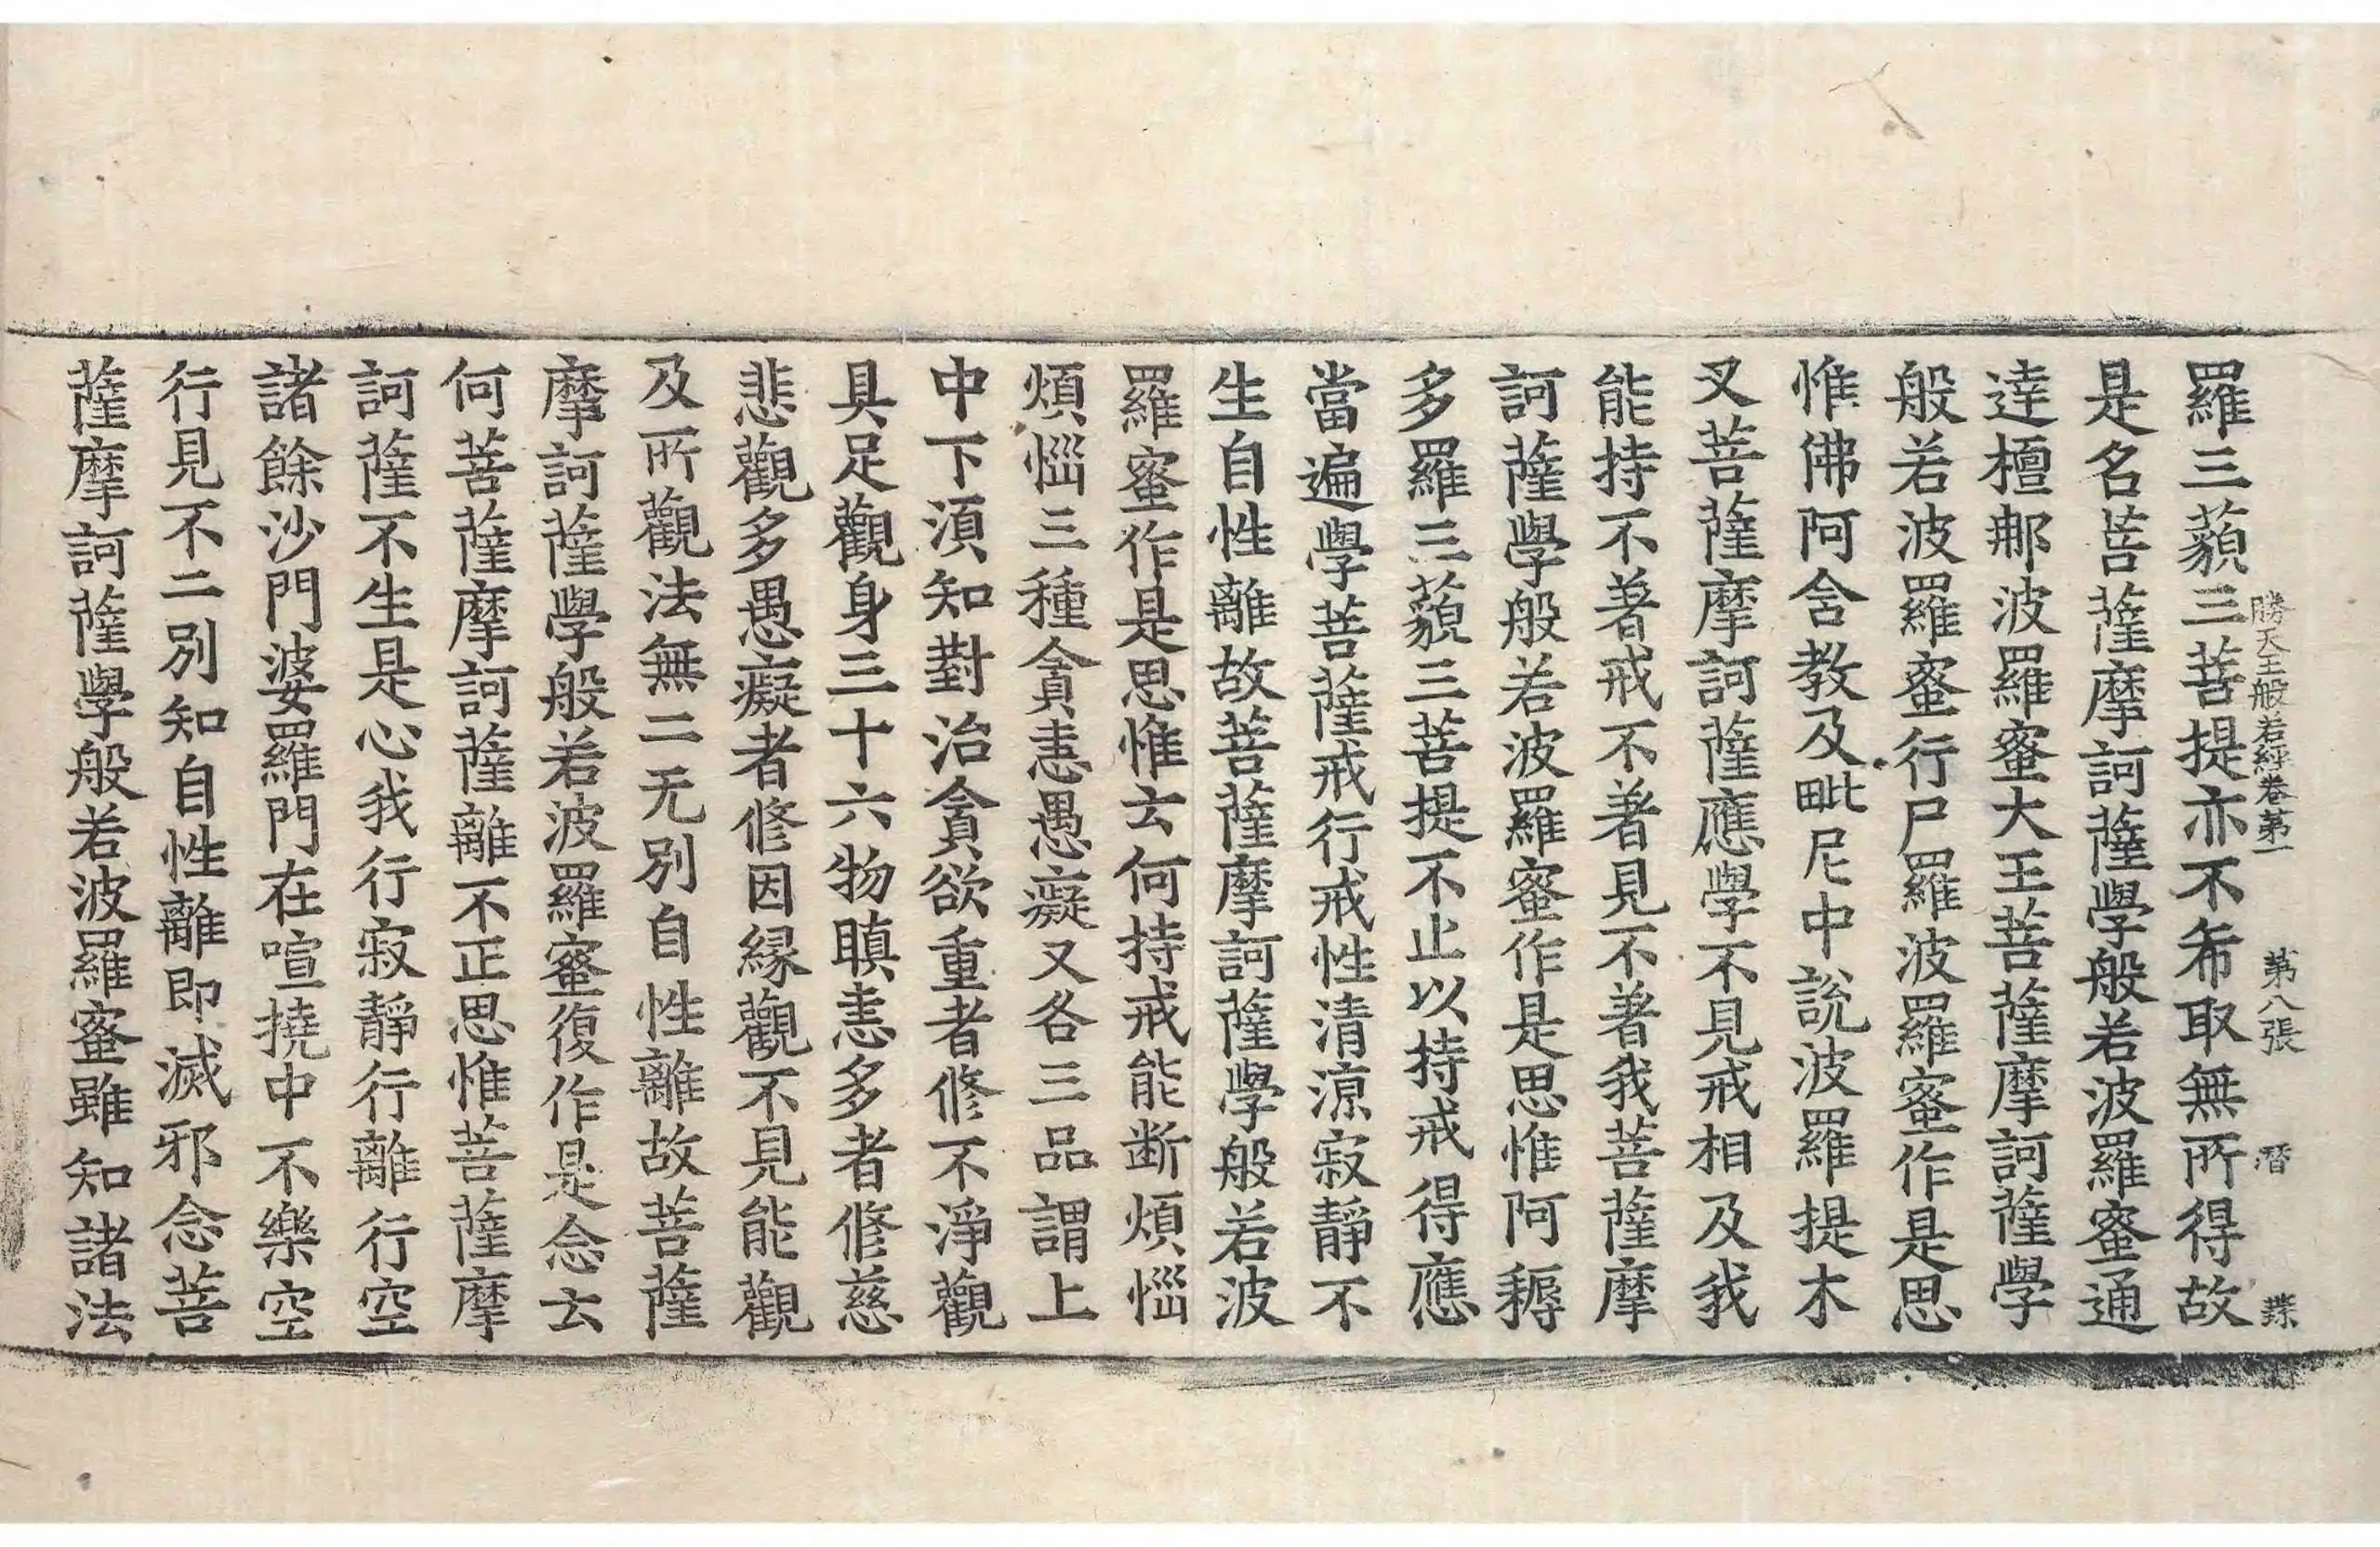 勝天王般若經卷第一　第八張　㬱
羅三藐三菩提亦不希取無所得故
是名菩薩摩訶薩學般若波羅蜜通
達檀那波羅蜜大王菩薩摩訶薩學
般若波羅蜜行尸羅波羅蜜作是思
惟佛阿含教及毗尼中說波羅提木
叉菩薩摩訶薩應學不見戒相及我
能持不著戒不著見不著我菩薩摩
訶薩學般若波羅蜜作是思惟阿耨
多羅三藐三菩提不止以持戒得應
當遍學菩薩戒行戒性清涼寂靜不
生自性離故菩薩摩訶薩學般若波
羅蜜作是思惟云何持戒能断煩惱
煩惱三種貪恚愚癡又各三品謂上
中下須知對治貪欲重者修不淨觀
具足觀身三十六物瞋恚多者修慈
悲觀多愚癡者修因緣觀不見能觀
及所觀法無二无別自性離故菩薩
摩訶薩學般若波羅蜜復作是念云
何菩薩摩訶薩離不正思惟菩薩摩
訶薩不生是心我行寂靜行離行空
諸餘沙門婆羅門在喧撓中不樂空
行見不二別知自性離即滅邪念菩
薩摩訶薩學般若波羅蜜雖知諸法